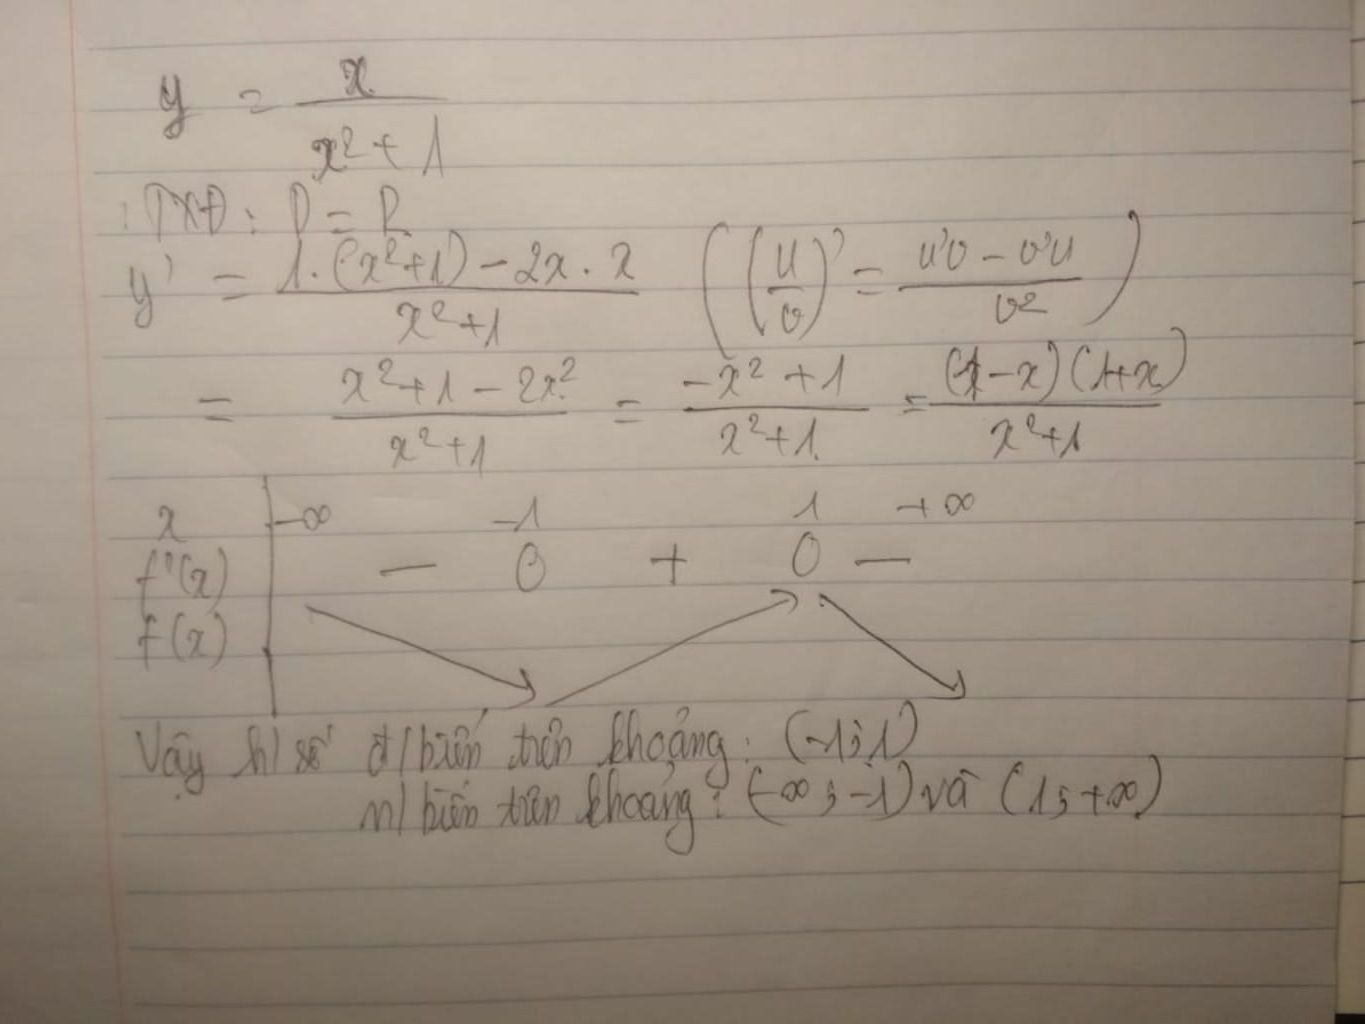 y = x / (x² + 1)
: TXĐ: D = R
y' = (1.(x²+1) - 2x . x) / (x²+1) ((u/v)' = (u'v - v'u) / v²)
= (x²+1 - 2x²) / (x²+1) = (-x² + 1) / (x²+1) = ((1-x)(1+x)) / (x²+1)
x | -∞ -1 1 +∞
f'(x) | - 0 + 0 -
f(x) | ↘ ↗ ↘
Vậy h/ số đ/biến trên khoảng: (-1;1)
n/ biến trên khoảng: (-∞; -1) và (1; +∞)